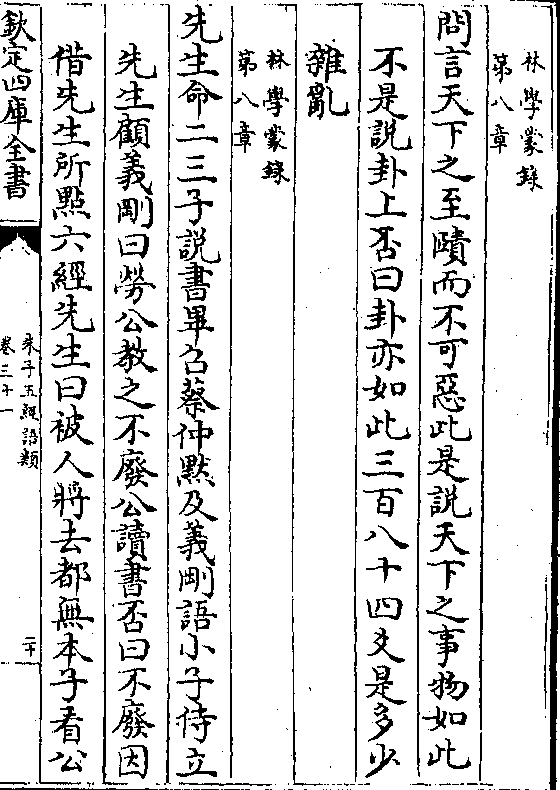 林學蒙錄
第八章
問言天下之至賾而不可惡此是説天下之事物如此
不是説卦上否曰卦亦如此三百八十四爻是多少
雜亂
林學蒙錄
第八章
先生命二三子説書畢召蔡仲黙及義剛語小子侍立
先生顧義剛曰勞公教之不廢公讀書否曰不廢因
借先生所㸃六經先生曰被人將去都無本子看公
欽定四庫全書
朱子五經語類
卷三十一
二十